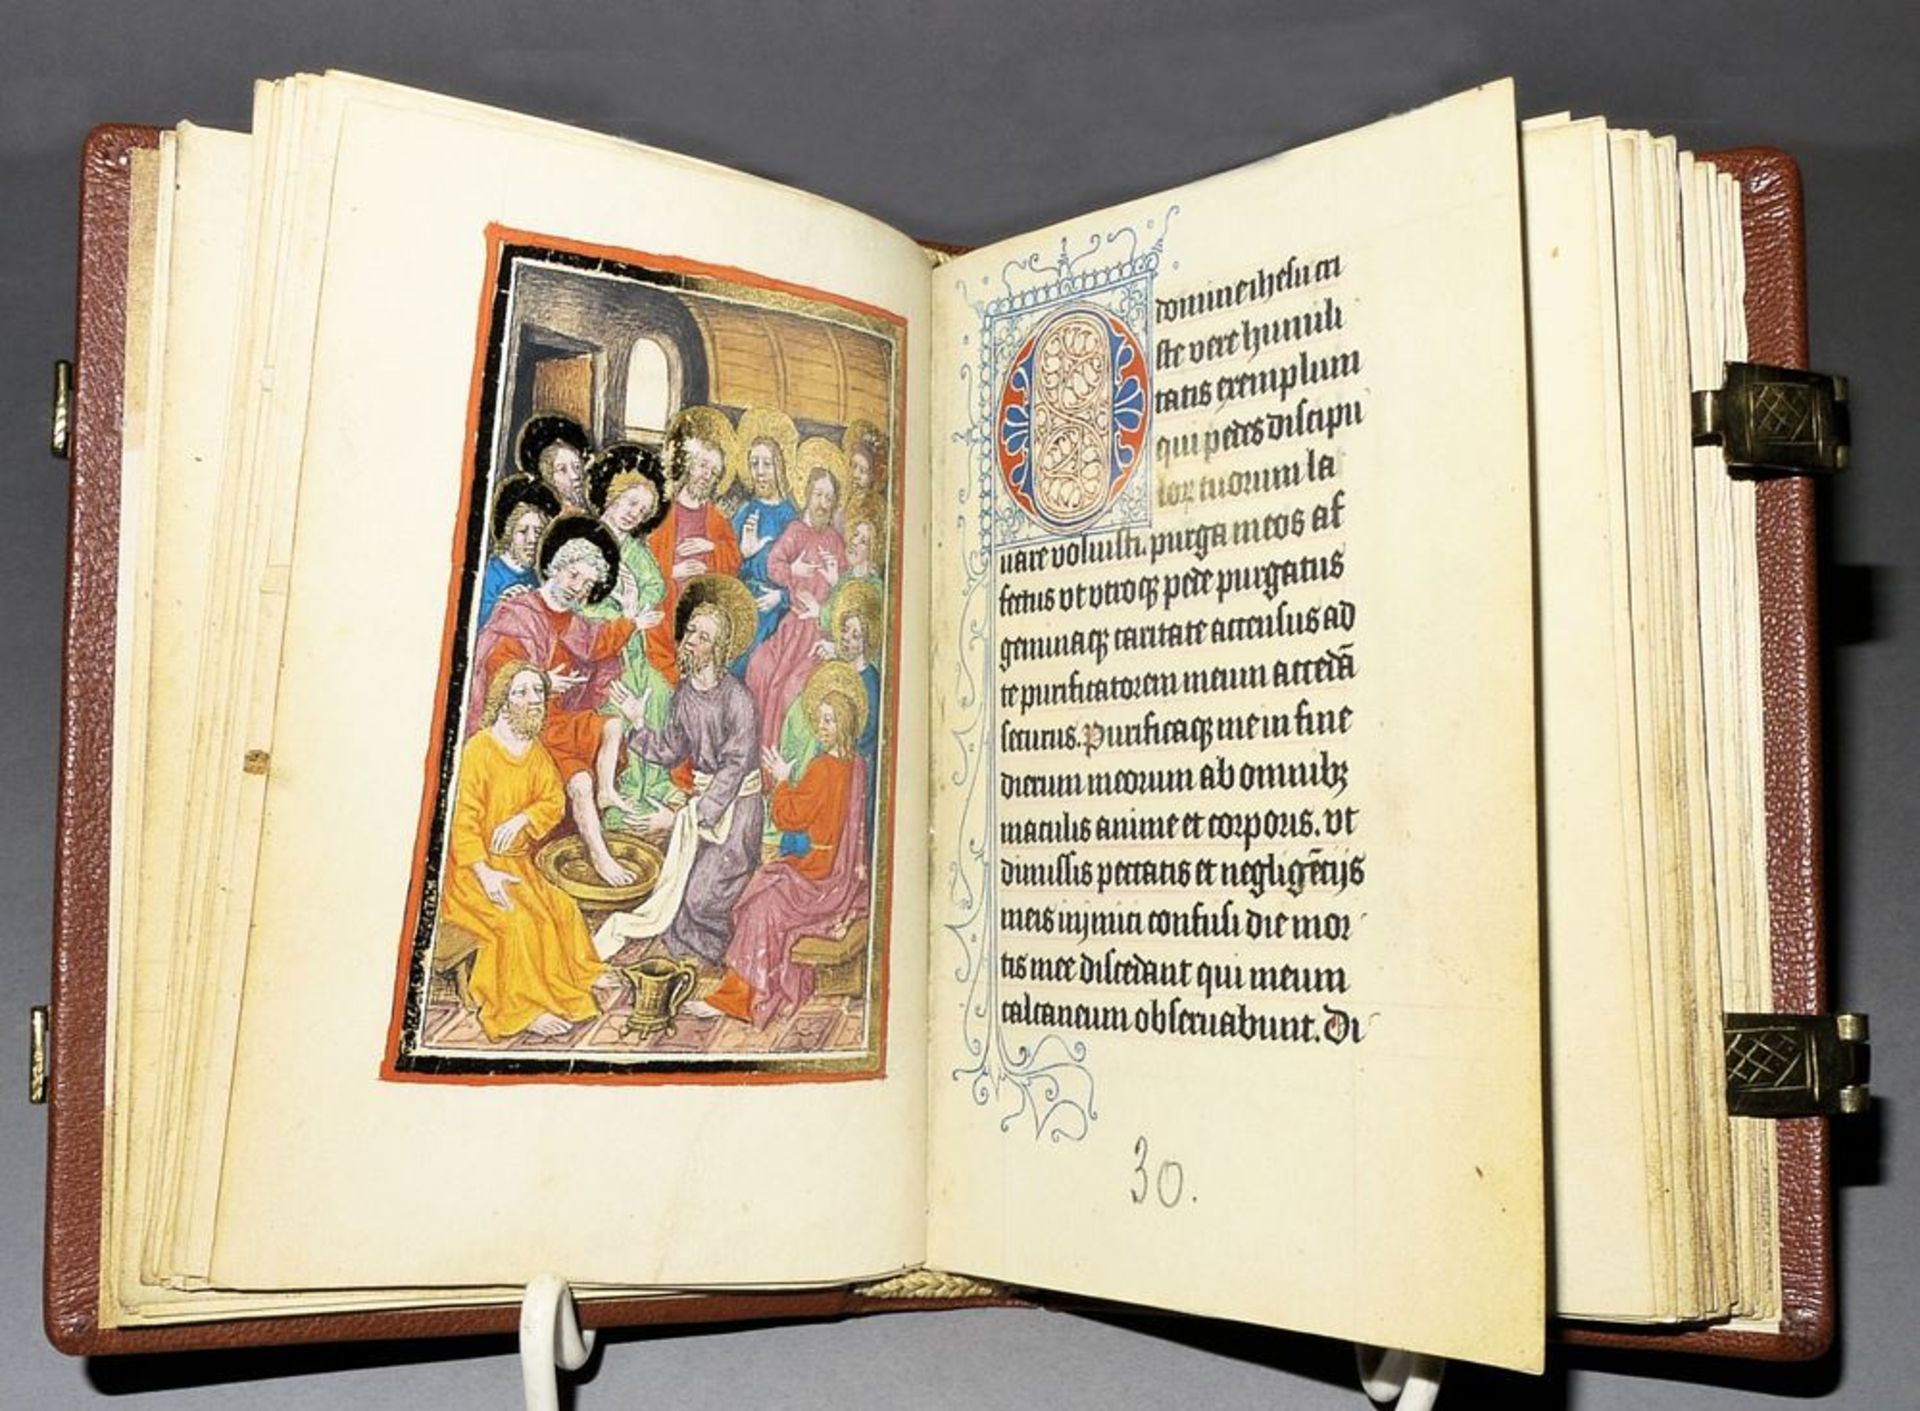 O domine ihesu cri
ste vere humili
tatis exemplum
qui pedes discipu
lorꝫ tuorum la
uare voluisti. purga meos af
fectus vt vtroqꝫ pede purgatus
geminaqꝫ caritate accensus ad
te purificatorem meum accedā
securus. Purificaqꝫ me in fine
dierum meorum ab omnibꝫ
maculis anime et corporis. vt
dimissis peccatis et negligētijs
meis inimici confusi die mor
tis mee discedant qui meum
calcaneum obseruabunt. Di
30.